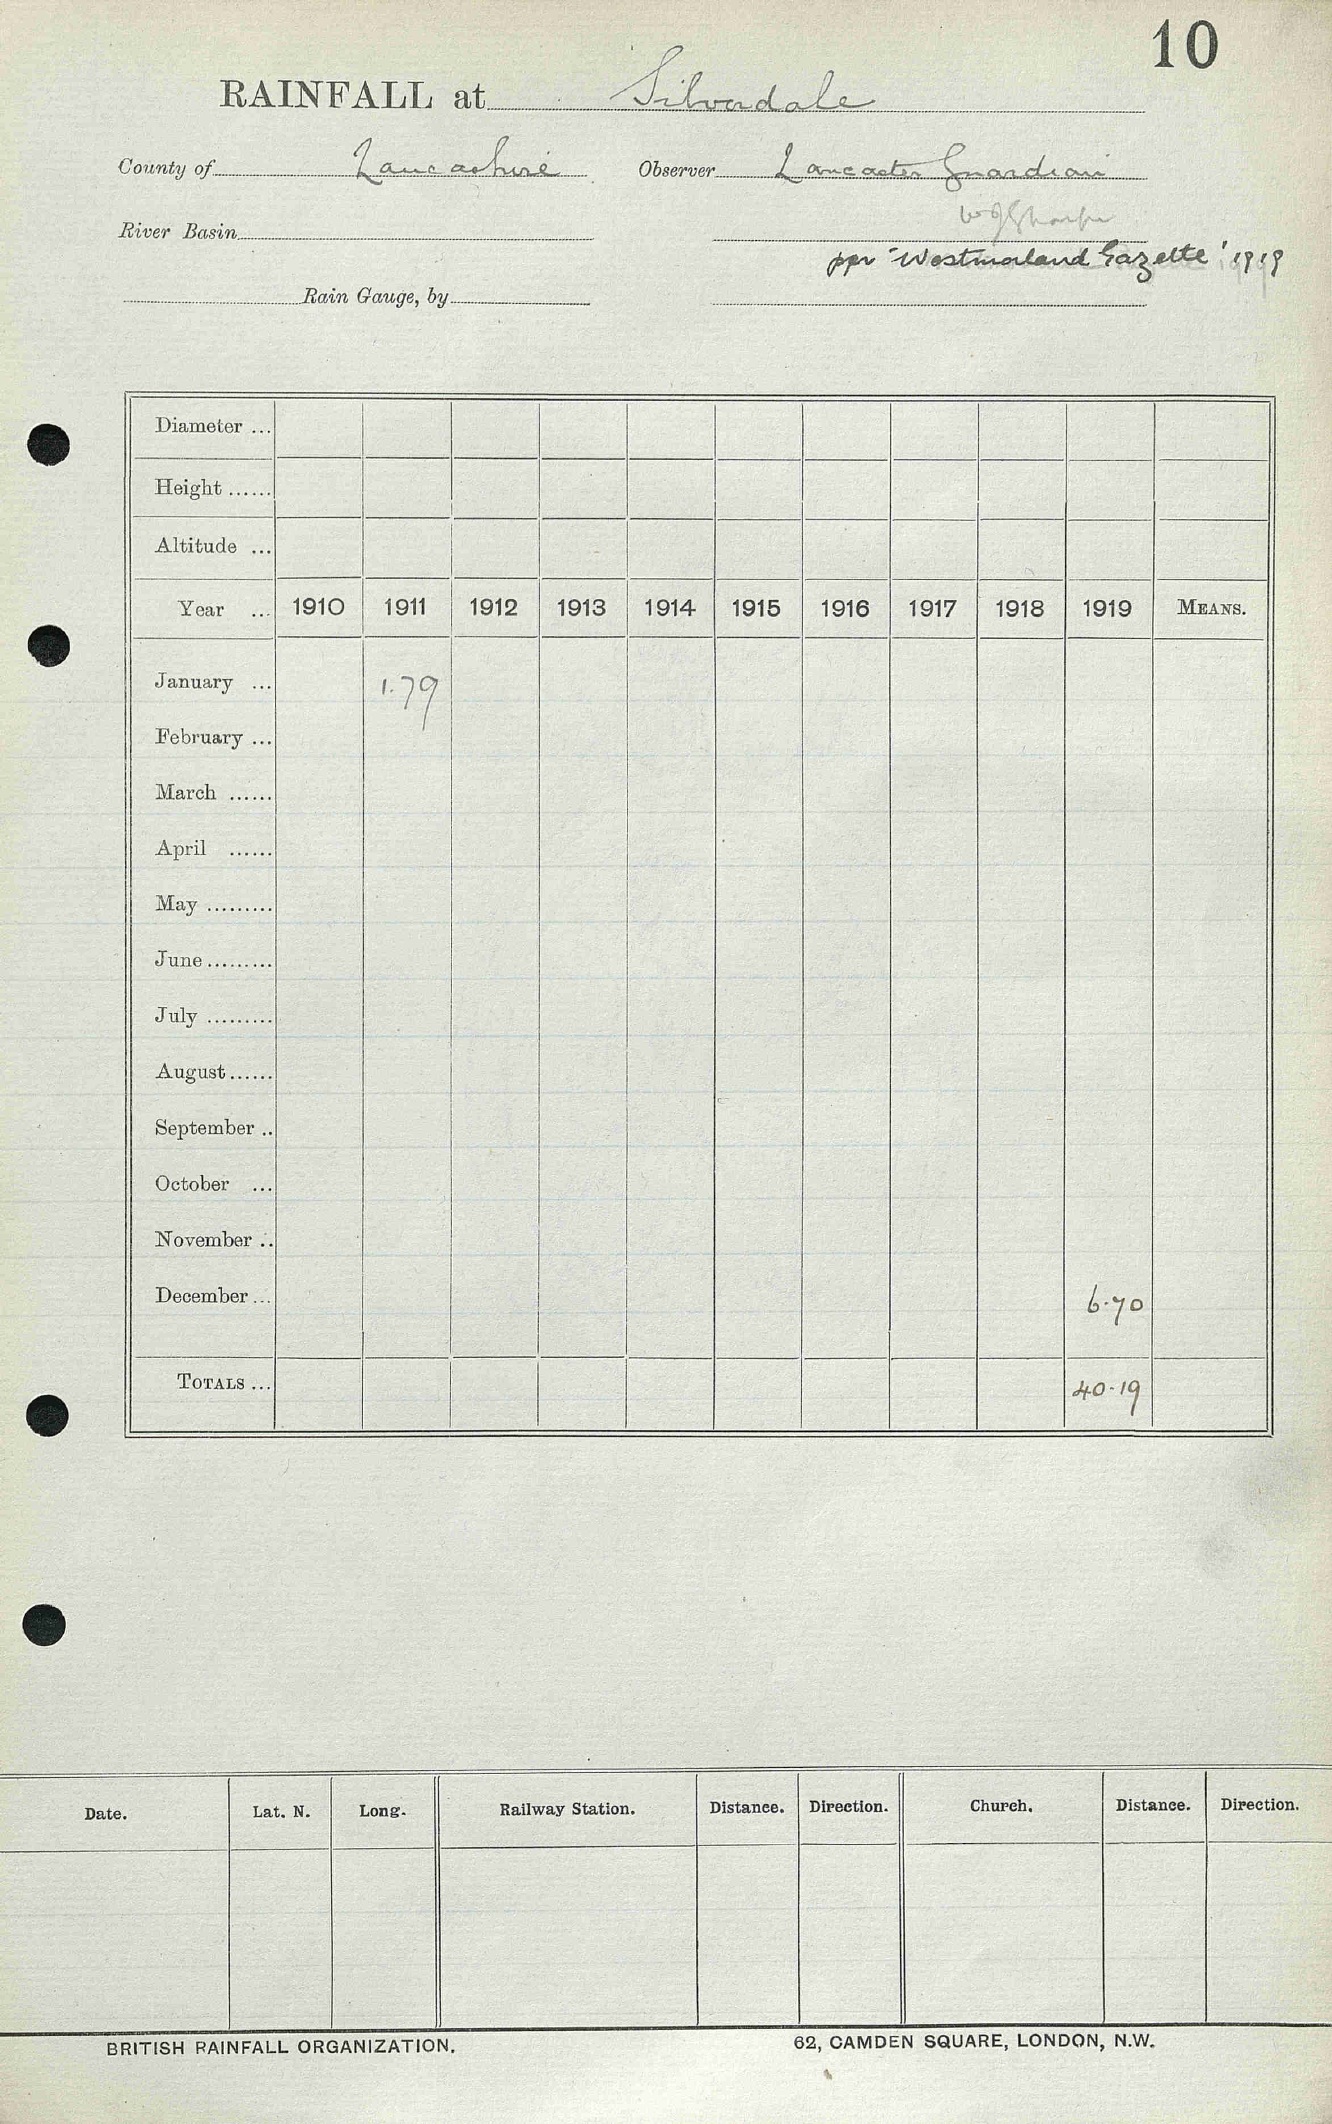 10
RAINFALL at Silverdale
County of Lancashire Observer Lancaster Guardian
River Basin
per "Westmorland Gazette" 1919
Rain Gauge, by
Diameter ...
Height ......
Altitude ...
Year ... 1910 1911 1912 1913 1914 1915 1916 1917 1918 1919 MEANS.
January ... 1.79
February ...
March ......
April ......
May .........
June .........
July .........
August ......
September ..
October ...
November ..
December ... 6.70
TOTALS ... 40.19
Date. Lat. N. Long. Railway Station. Distance. Direction. Church. Distance. Direction.
BRITISH RAINFALL ORGANIZATION. 62, CAMDEN SQUARE, LONDON, N.W.